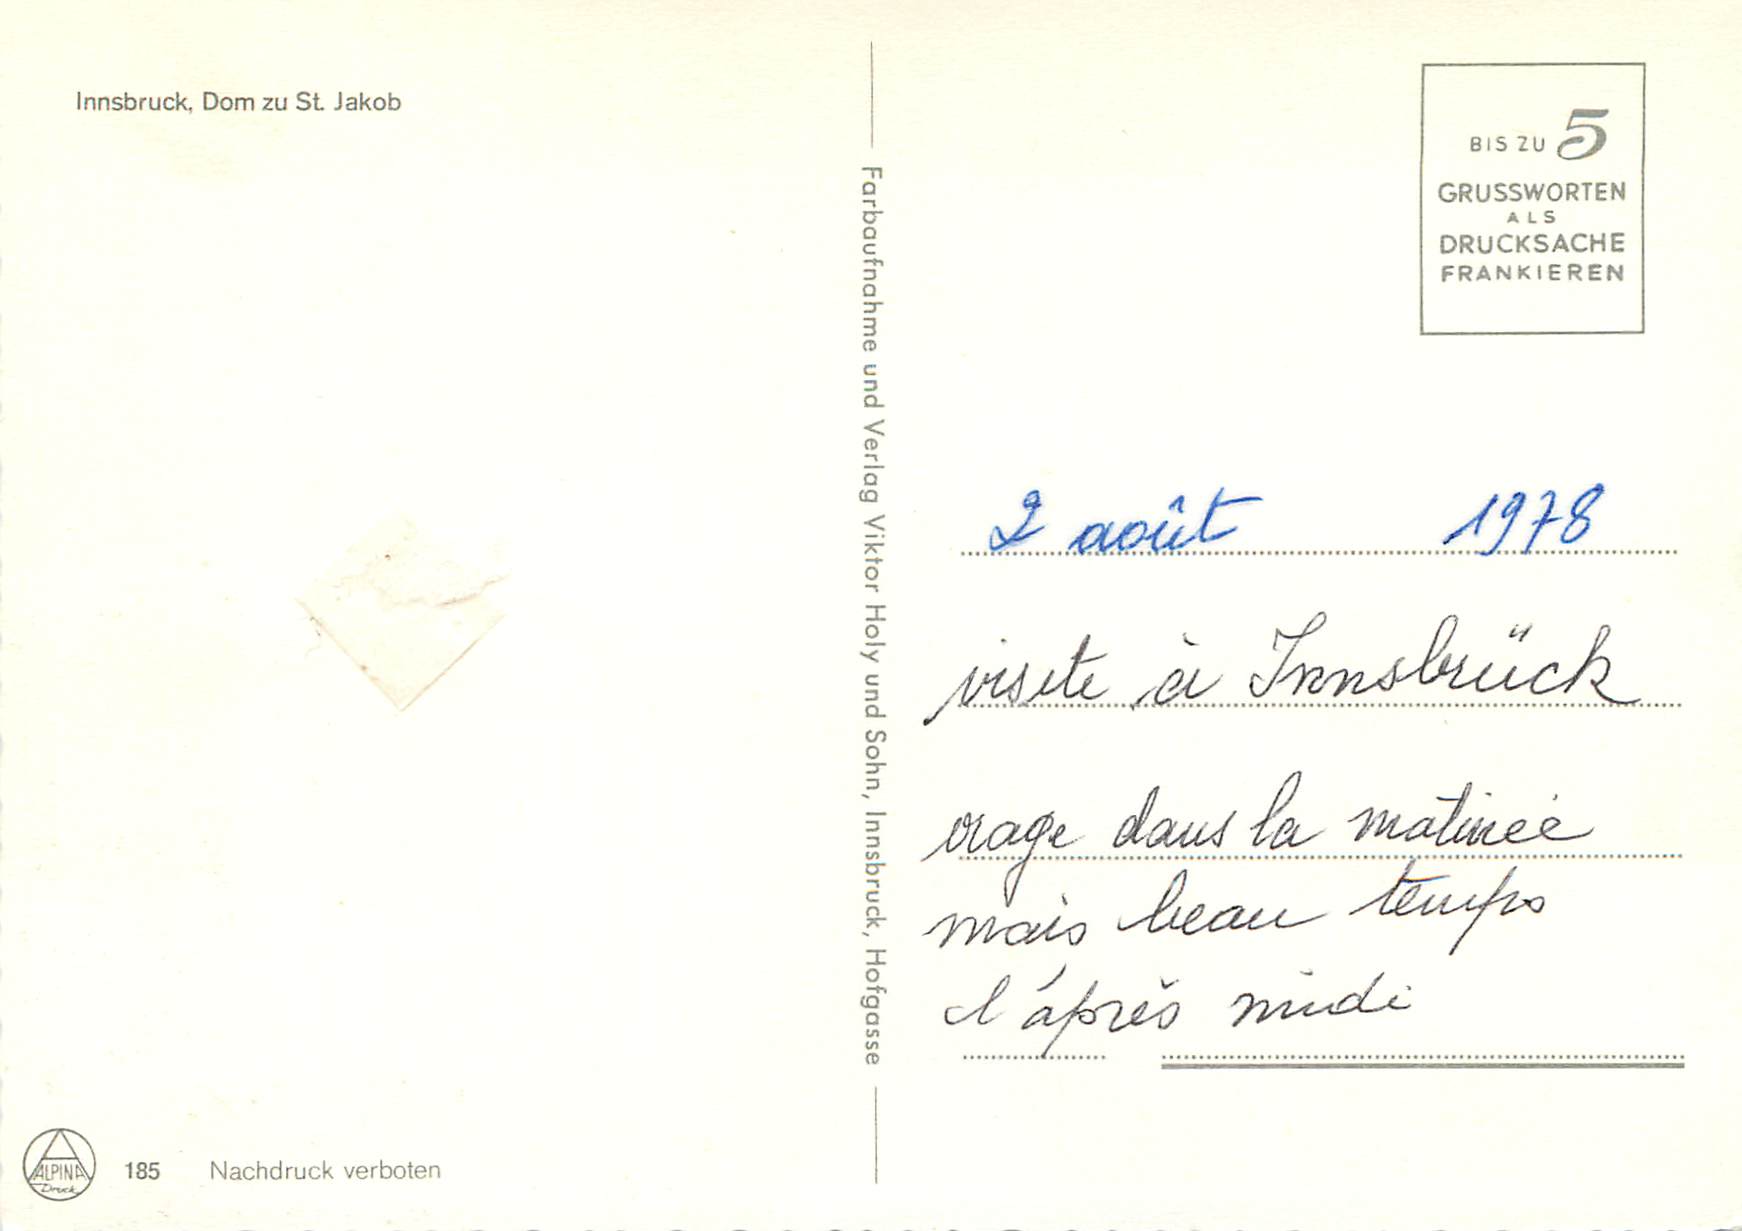 Innsbruck, Dom zu St. Jakob
Farbaufnahme und Verlag Viktor Holy und Sohn, Innsbruck, Hofgasse
BIS ZU 5
GRUSSWORTEN
ALS
DRUCKSACHE
FRANKIEREN
2 août 1978
visite à Innsbrück
orage dans la matinée
mais beau temps
l'après midi
ALPINA
Druck
185 Nachdruck verboten